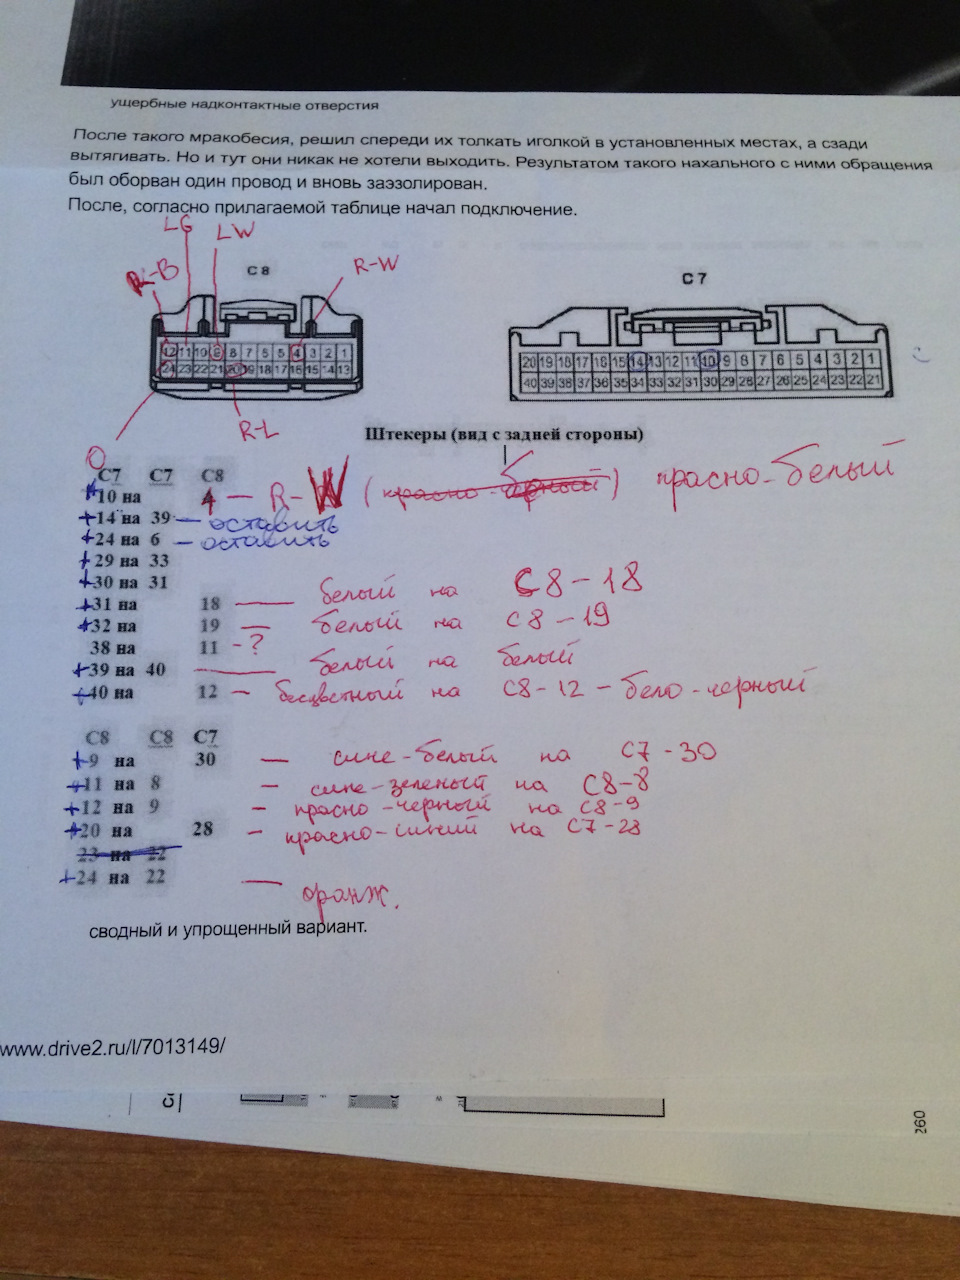 ущербные надконтактные отверстия
После такого мракобесия, решил спереди их толкать иголкой в установленных местах, а сзади
вытягивать. Но и тут они никак не хотели выходить. Результатом такого нахального с ними обращения
был оборван один провод и вновь заэзолирован.
После, согласно прилагаемой таблице начал подключение.
LG
LW
R-B
R-W
C 8
C 7
12 11 10 9 8 7 5 5 4 3 2 1
24 23 22 21 20 19 18 17 16 15 14 13
20 19 18 17 16 15 14 13 12 11 10 9 8 7 6 5 4 3 2 1
40 39 38 37 36 35 34 33 32 31 30 29 28 27 26 25 24 23 22 21
R-L
O
Штекеры (вид с задней стороны)
C7 C7 C8
+10 на 4 — R-W (красно-черный) красно-белый
+14 на 39 — оставить
+24 на 6 — оставить
+29 на 33
+30 на 31
+31 на 18 — белый на C8-18
+32 на 19 — белый на C8-19
38 на 11 - ?
+39 на 40 — белый на белый
+40 на 12 — бесцветный на C8-12 - бело-черный
C8 C8 C7
+9 на 30 — сине-белый на C7-30
+11 на 8 — сине-зеленый на C8-8
+12 на 9 — красно-черный на C8-9
+20 на 28 — красно-синий на C7-28
23 на 22
+24 на 22 — оранж.
сводный и упрощенный вариант.
www.drive2.ru/l/7013149/
260